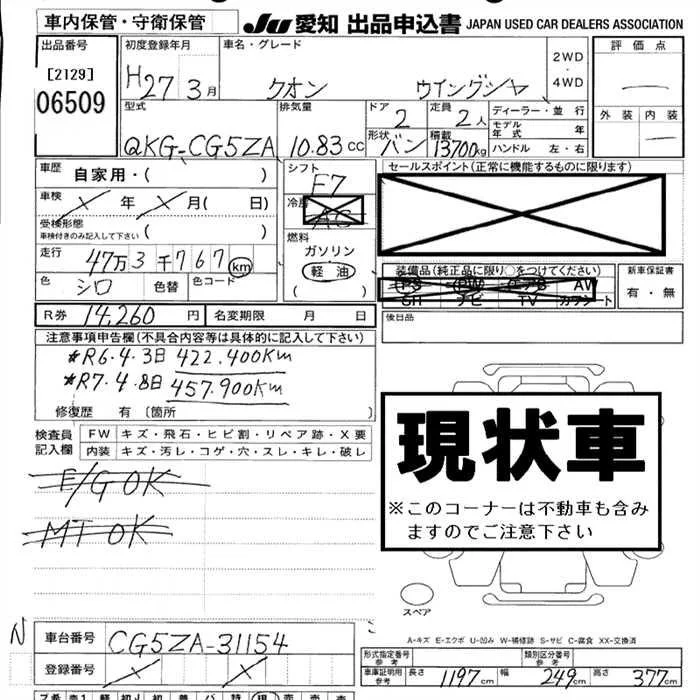 車内保管・守衛保管
JU 愛知 出品申込書 JAPAN USED CAR DEALERS ASSOCIATION
出品番号
[2129]
06509
初度登録年月
H27 3月
車名・グレード
クオン ウイングシャ
2WD
・
4WD
評価点
外装 内装
型式
QKG-CG5ZA
排気量
10.83 cc
ドア
2
形状
バン
定員
2人
積載
13700kg
ディーラー・並行
モデル年式 年
ハンドル 左・右
車歴
自家用・( )
車検
年 月( 日)
受検形態
車検付きのみ記入して下さい ( )
走行
47万3千767 km
色
シロ
色替
色コード
シフト
F7
冷房
AC
燃料
ガソリン
軽油
( )
セールスポイント(正常に機能するものに限ります)
装備品(純正品に限り○をつけてください)
PS PW エアB AW
SR ナビ TV カワシート
新車保証書
有・無
R券 14,260 円 名変期限 月 日
後日品
注意事項申告欄(不具合内容等は具体的に記入して下さい)
*R6.4.3日 422.400Km
*R7.4.8日 457.900Km
修復歴 有 〔箇所 〕
検査員記入欄
FW キズ・飛石・ヒビ割・リペア跡・X要
内装 キズ・汚レ・コゲ・穴・スレ・キレ・破レ
E/G OK
MT OK
現状車
※このコーナーは不動車も含み
ますのでご注意下さい
スペア
A-キズ E-エクボ U-凹み W-補修跡 S-サビ C-腐食 XX-交換済
N
車台番号 CG5ZA-31154
登録番号
形式指定番号
参考
類別区分番号
参考
車庫証明用
参考
長さ 1197cm 幅 249cm 高さ 377cm